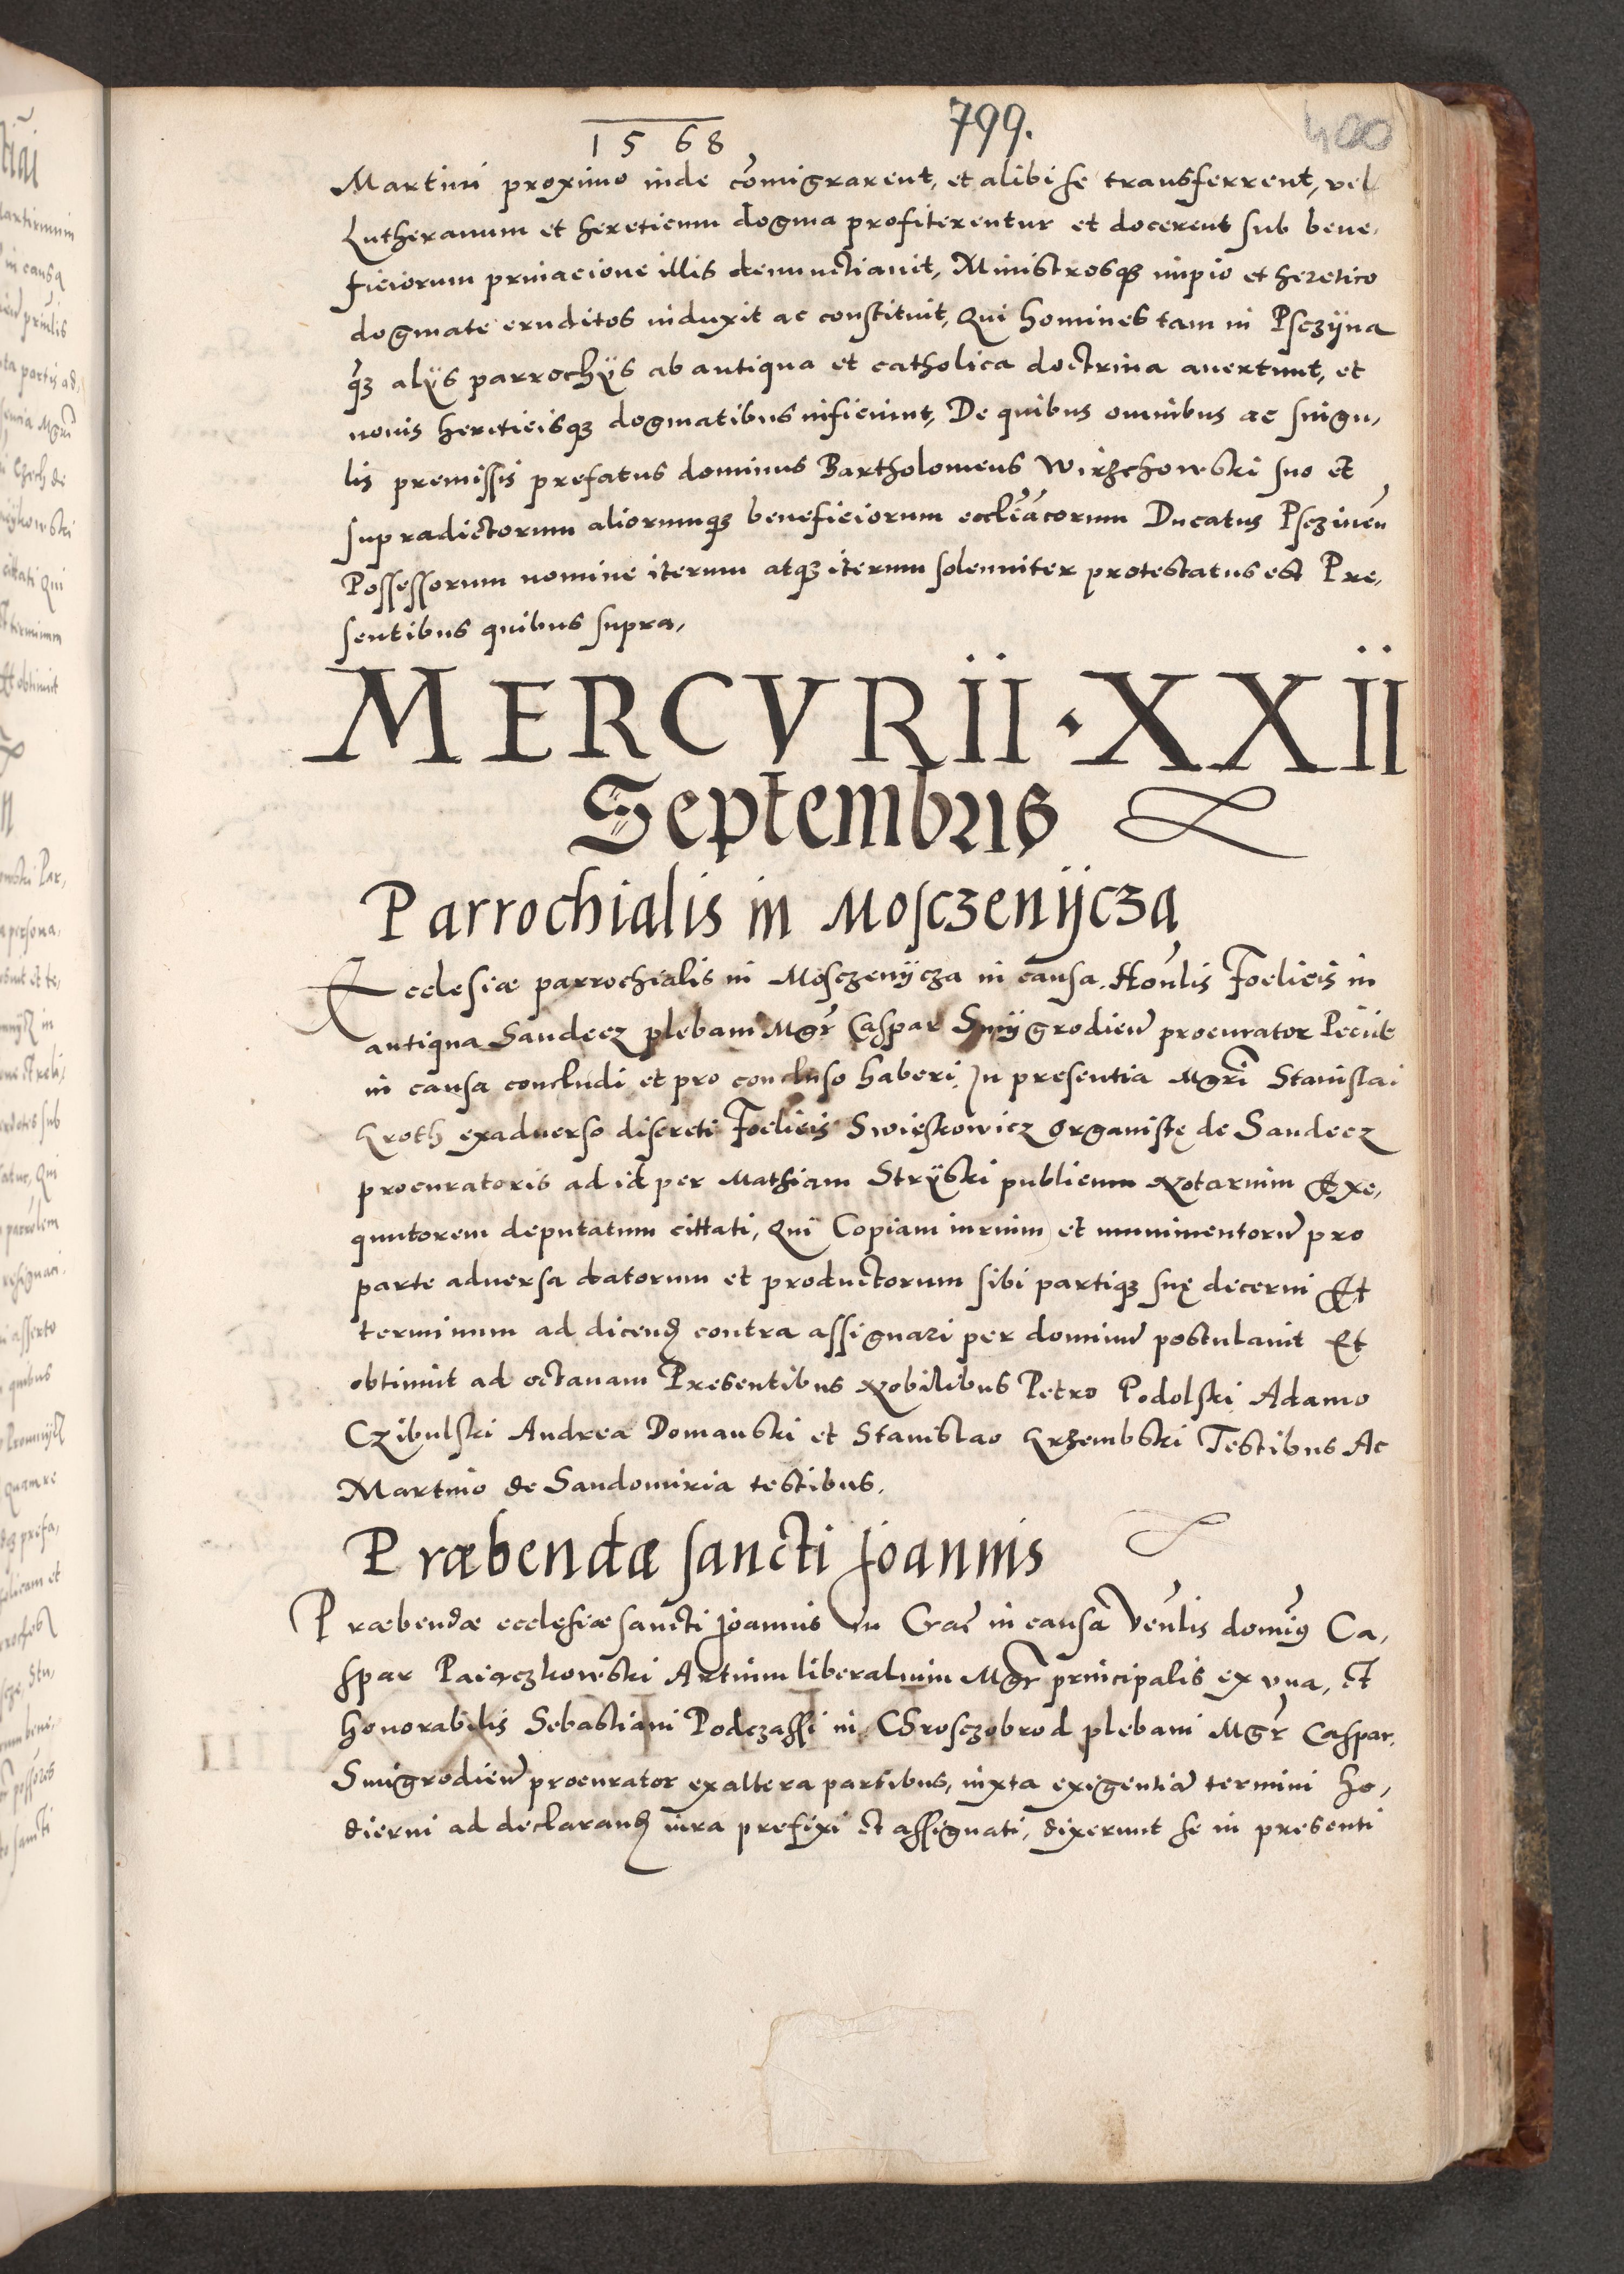 1568
799.
400
Martini proximo inde cōmigrarent, et alibi se transferrent, vel
Lutheranum et hereticum dogma profiterentur et docerent sub bene,
ficiorum priuacione illis denunctiauit, Ministrosqȝ impio et heretico
dogmate eruditos induxit ac constituit, Qui homines tam in Psczyna
qȝ alijs parrochijs ab antiqua et catholica doctrina auertunt, et
nouis hereticisqȝ dogmatibus inficiunt, De quibus omnibus ac singu,
lis premissis prefatus dominus Bartholomeus Wirzchowski suo et
supradictorum aliorumqȝ beneficiorum eccleiacorum Ducatus Psczinen̄
Possessorum nomine iterum atqȝ iterum solenniter protestatus est Pre,
sentibus quibus supra,
MERCVRII · XXII
Septembris
Parrochialis in Mosczenijcza
Ecclesiæ parrochialis in Mosczenijcza in causa Honlis Foelicis in
antiqua Sandecz plebani Mgr̄ Caspar Smijgrodien̄ procurator Peciit
in causa concludi et pro concluso haberi, In presentia Mgrī Stanislai
Groth exaduerso discreti Foelicis Swieskowicz organistę de Sandecz
procuratoris ad id per Mathiam Stryski publicum Notarium Exe,
quutorem deputatum cittati, Qui Copiam iurium et munimentorū pro
parte aduersa datorum et productorum sibi partiqȝ suę decerni Et
terminum ad dicend̄ contra assignari per dominū postulauit Et
obtinuit ad octauam Presentibus Nobilibus Petro Podolski Adamo
Czibulski Andrea Domanski et Stanislao Grzembski Testibus Ac
Martino de Sandomiria testibus.
Præbendæ sancti Joannis
Præbendæ ecclesiæ sancti Joannis in Crac̄ in causa Venlis dominȳ Ca,
spar Paiączkowski Artium liberalium Mgr̄ principalis ex vna, et
honorabilis Sebastiani Podczassi in Chrosczobrod plebani Mgr̄ Caspar
Smigrodien̄ procurator ex altera partibus, iuxta exigentiā termini ho,
dierni ad declarand̄ iura prefixi et assignati, dixerunt se in presenti